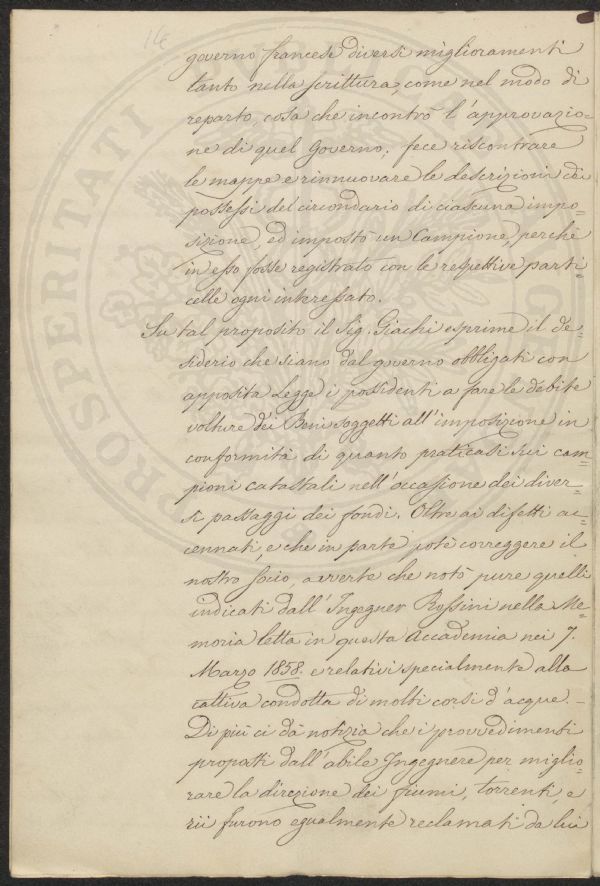 governo francese diversi miglioramenti
tanto nella scrittura, come nel modo di
reparto, cosa che incontrò l'approvazio=
ne di quel Governo; fece riscontrare
le mappe e rinnuovare le descrizioni di
possessi del circondario di ciascuna impo=
sizione, ed impostò un Campione, perchè
in esso fosse registrato con le respettive parti=
celle ogni interessato.
Su tal proposito il Sig. Giachi esprime il de=
siderio che siano dal governo obbligati con
apposita Legge i possidenti a fare le debite
volture dei Beni soggetti all'imposizione in
conformità di quanto praticasi sui cam=
pioni catastali nell'occasione dei diver=
si passaggi dei fondi. Oltre ai difetti ac=
cennati, e che in parte potè correggere il
nostro socio, avverte che notò pure quelli
indicati dall'Ingegner Rossini nella Me=
moria letta in questa Accademia nei 7.
Marzo 1858. e relativi specialmente alla
cattiva condotta di molti corsi d'acque. –
Di più ci dà notizia che i provvedimenti
proposti dall'abile Ingegnere per miglio=
rare la direzione dei fiumi, torrenti, e
rii furono egualmente reclamati da lui
PROSPERITATI